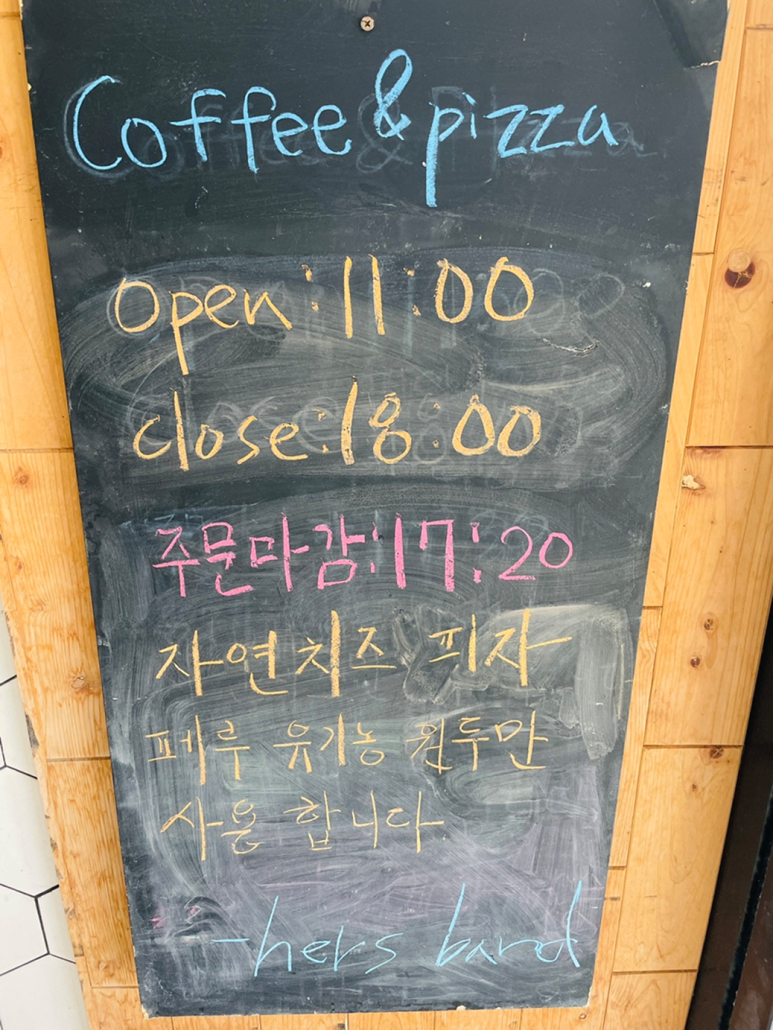 Coffee & pizza
open:11:00
close:18:00
주문마감:17:20
자연치즈 피자
페루 유기농 원두만
사용 합니다
-hers band